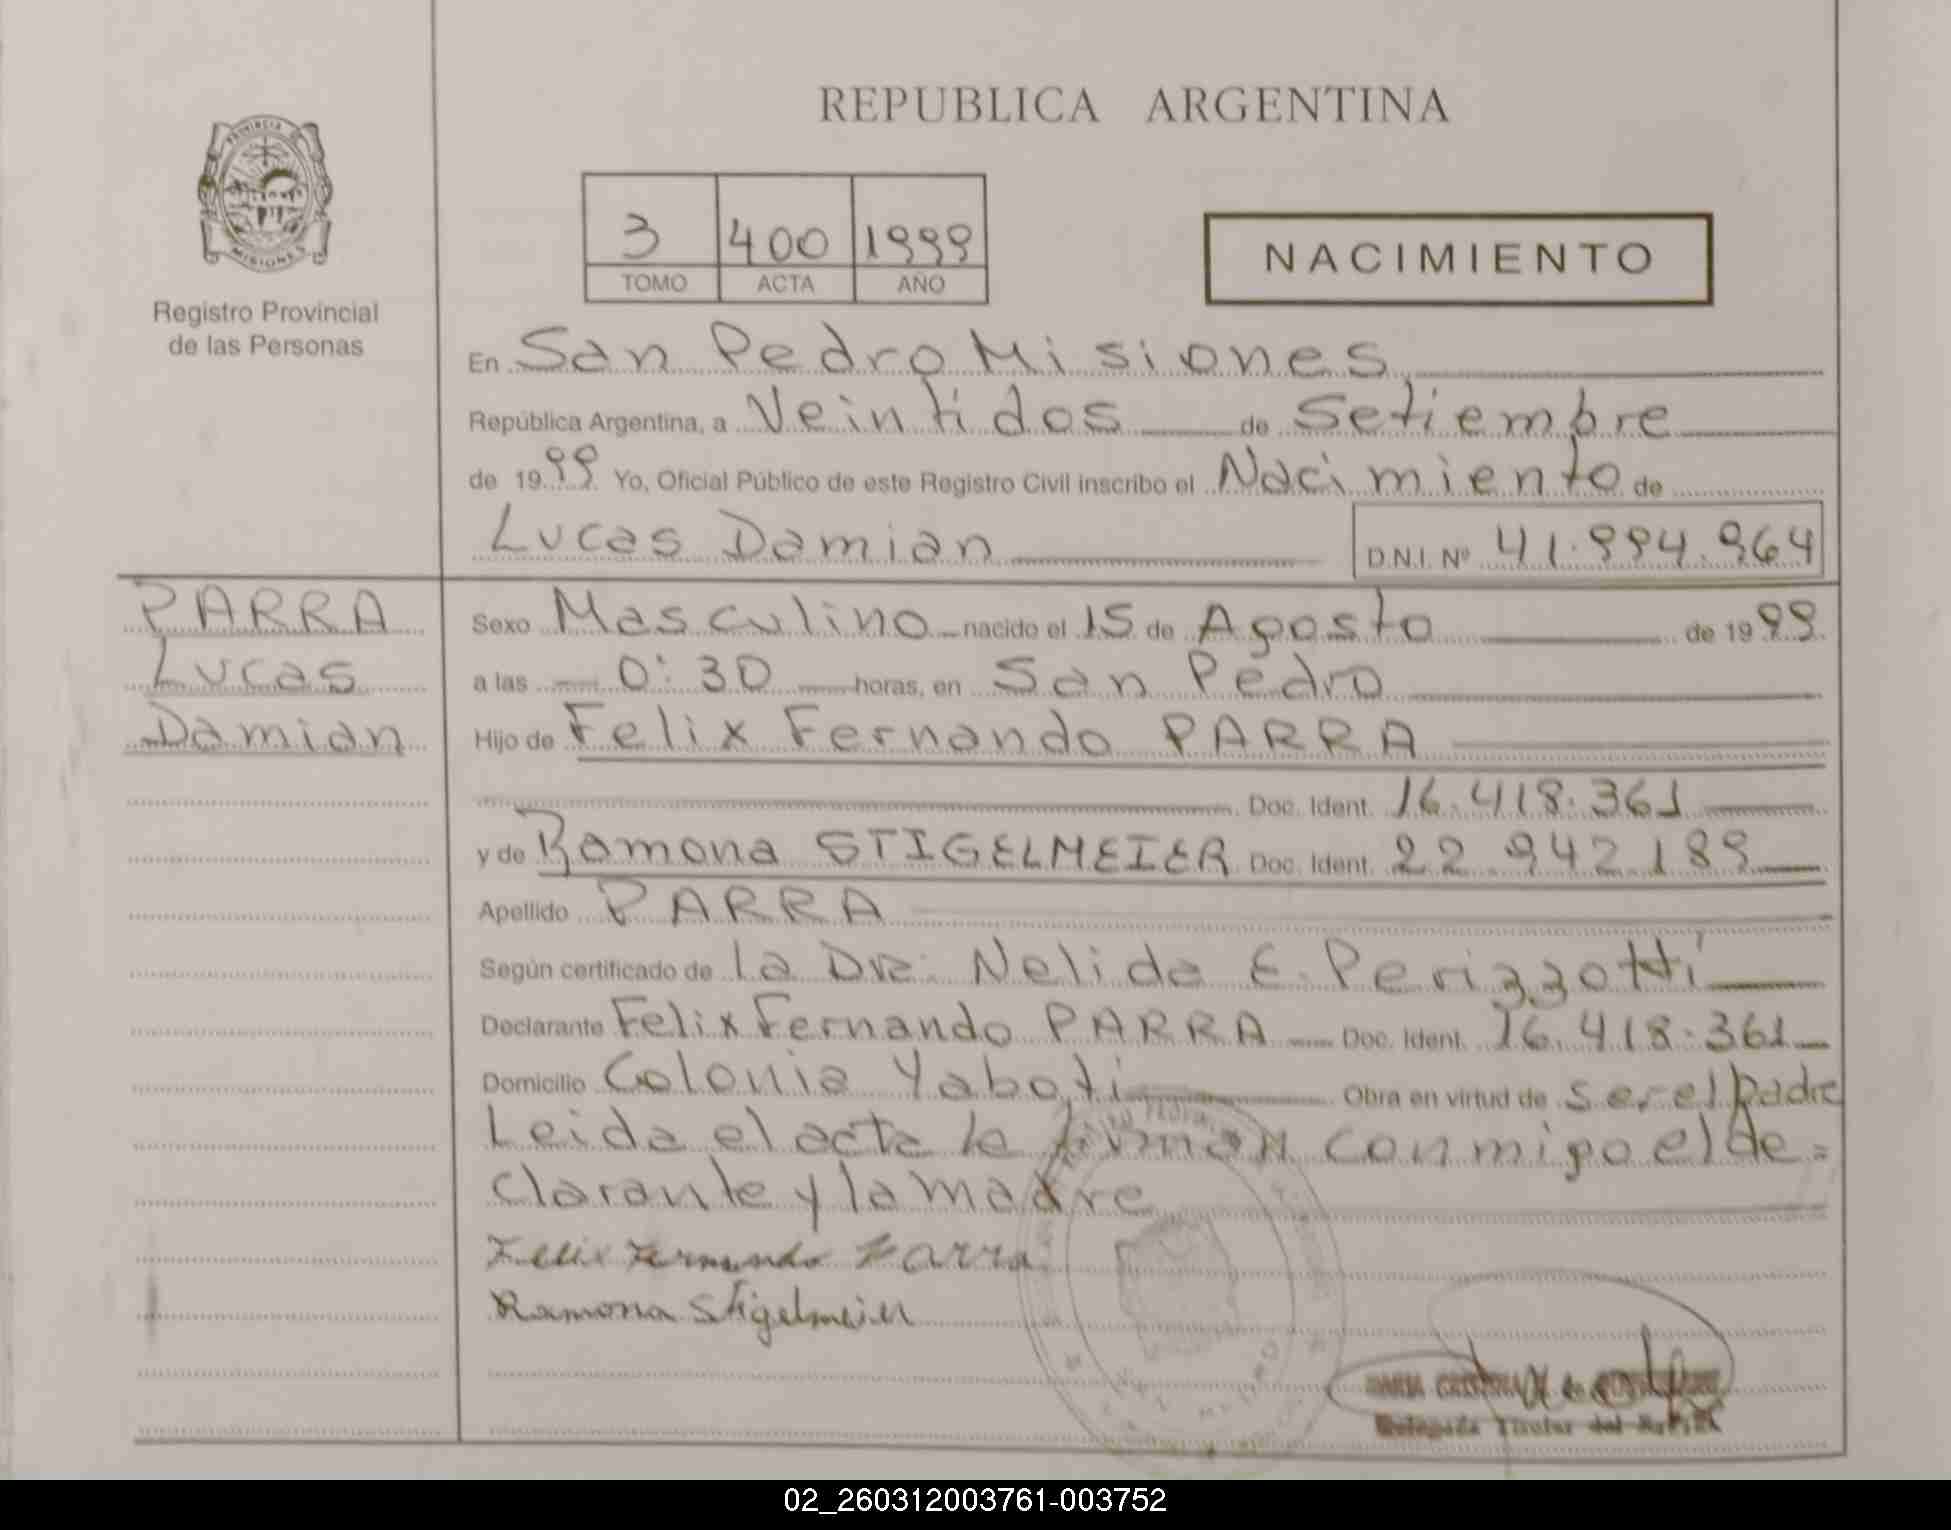 REPUBLICA ARGENTINA
PROVINCIA
MISIONES
Registro Provincial
de las Personas
3 400 1999
TOMO ACTA AÑO
NACIMIENTO
En San Pedro Misiones
República Argentina, a Veintidos de Setiembre
de 1999 Yo, Oficial Público de este Registro Civil inscribo el Nacimiento de
Lucas Damian D.N.I. Nº 41.994.964
PARRA
Lucas
Damian
Sexo Masculino nacido el 15 de Agosto de 1999
a las 0:30 horas, en San Pedro
Hijo de Felix Fernando PARRA
Doc. Ident. 16.418.361
y de Ramona STIGELMEIER Doc. Ident. 22.942.189
Apellido PARRA
Según certificado de la Dra. Nelida E. Perizzotti
Declarante Felix Fernando PARRA Doc. Ident. 16.418.361
Domicilio Colonia Yaboti Obra en virtud de ser el padre
Leida el acta la firman conmigo el de=
clarante y la madre
Felix Fernando Parra
Ramona Stigelmeier
Delegada Titular del
02_260312003761-003752